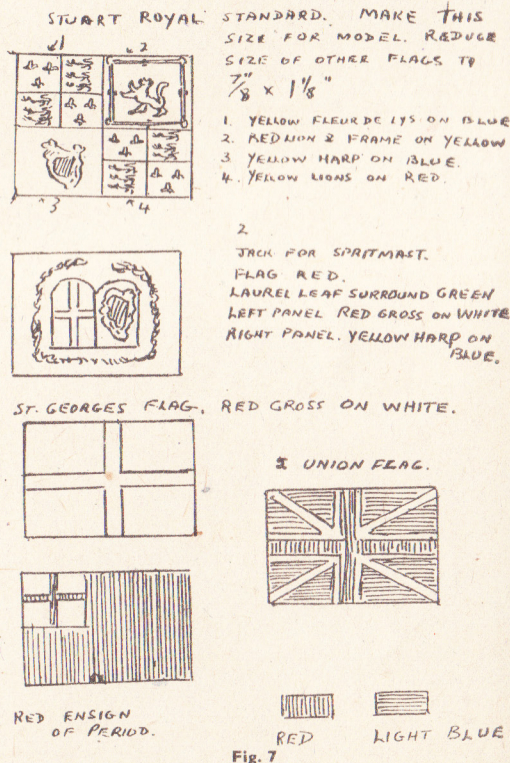 STUART ROYAL STANDARD. MAKE THIS
SIZE FOR MODEL. REDUCE
SIZE OF OTHER FLAGS TO
7/8" x 1 1/8"
1 2
1. YELLOW FLEUR DE LYS ON BLUE
2. RED LION & FRAME ON YELLOW
3 YELLOW HARP ON BLUE.
4. YELLOW LIONS ON RED.
3 4
2
JACK FOR SPRITMAST.
FLAG RED.
LAUREL LEAF SURROUND GREEN
LEFT PANEL RED GROSS ON WHITE
RIGHT PANEL. YELLOW HARP ON
BLUE.
ST. GEORGES FLAG, RED GROSS ON WHITE.
1 UNION FLAG.
RED ENSIGN
OF PERIOD.
RED LIGHT BLUE
Fig. 7